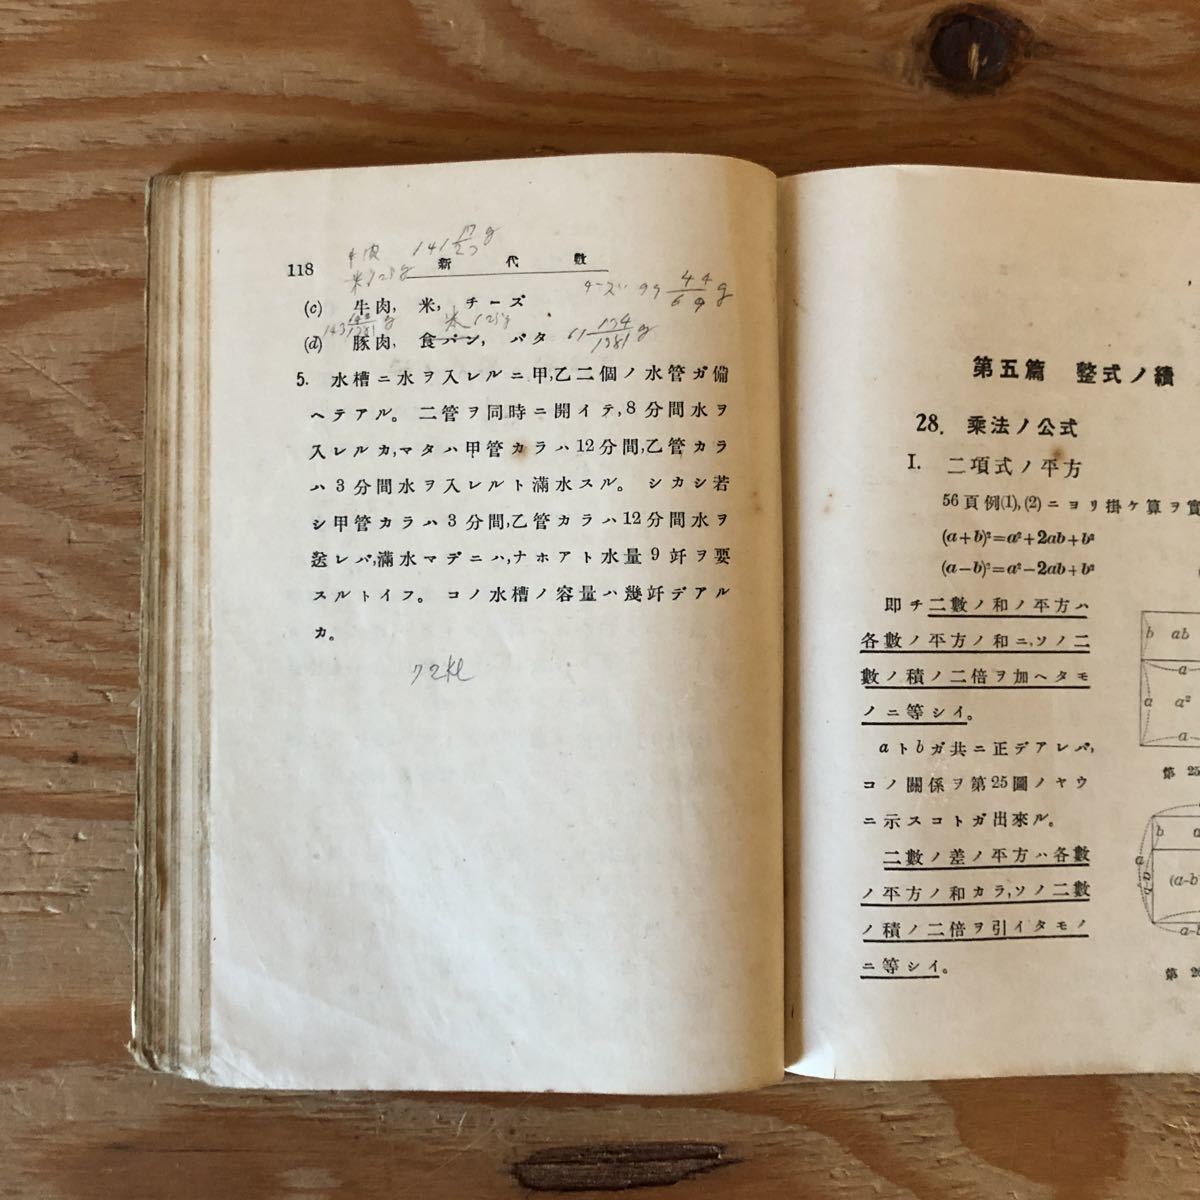 118 新代數
(c) 牛肉, 米, チーズ
(d) 豚肉, 食パン, バタ
米 125g
5. 水槽ニ水ヲ入レルニ甲,乙二個ノ水管ガ備
ヘテアル。 二管ヲ同時ニ開イテ,8分間水ヲ
入レルカ,マタハ甲管カラハ12分間,乙管カラ
ハ3分間水ヲ入レルト滿水スル。 シカシ若
シ甲管カラハ3分間,乙管カラハ12分間水ヲ
送レバ,滿水マデニハ,ナホアト水量9竏ヲ要
スルトイフ。 コノ水槽ノ容量ハ幾竏デアル
カ。
72kl
第五篇 整式ノ積
28. 乘法ノ公式
I. 二項式ノ平方
56頁例(1),(2)ニヨリ掛ケ算ヲ實
(a+b)²=a²+2ab+b²
(a−b)²=a²−2ab+b²
即チ二數ノ和ノ平方ハ
各數ノ平方ノ和ニ,ソノ二
數ノ積ノ二倍ヲ加ヘタモ
ノニ等シイ。
aトbガ共ニ正デアレバ,
コノ關係ヲ第25圖ノヤウ
ニ示スコトガ出來ル。
二數ノ差ノ平方ハ各數
ノ平方ノ和カラ,ソノ二數
ノ積ノ二倍ヲ引イタモノ
ニ等シイ。
b ab
a
a a²
a
第 25
b
a a-b (a-b)
a-b
第 26